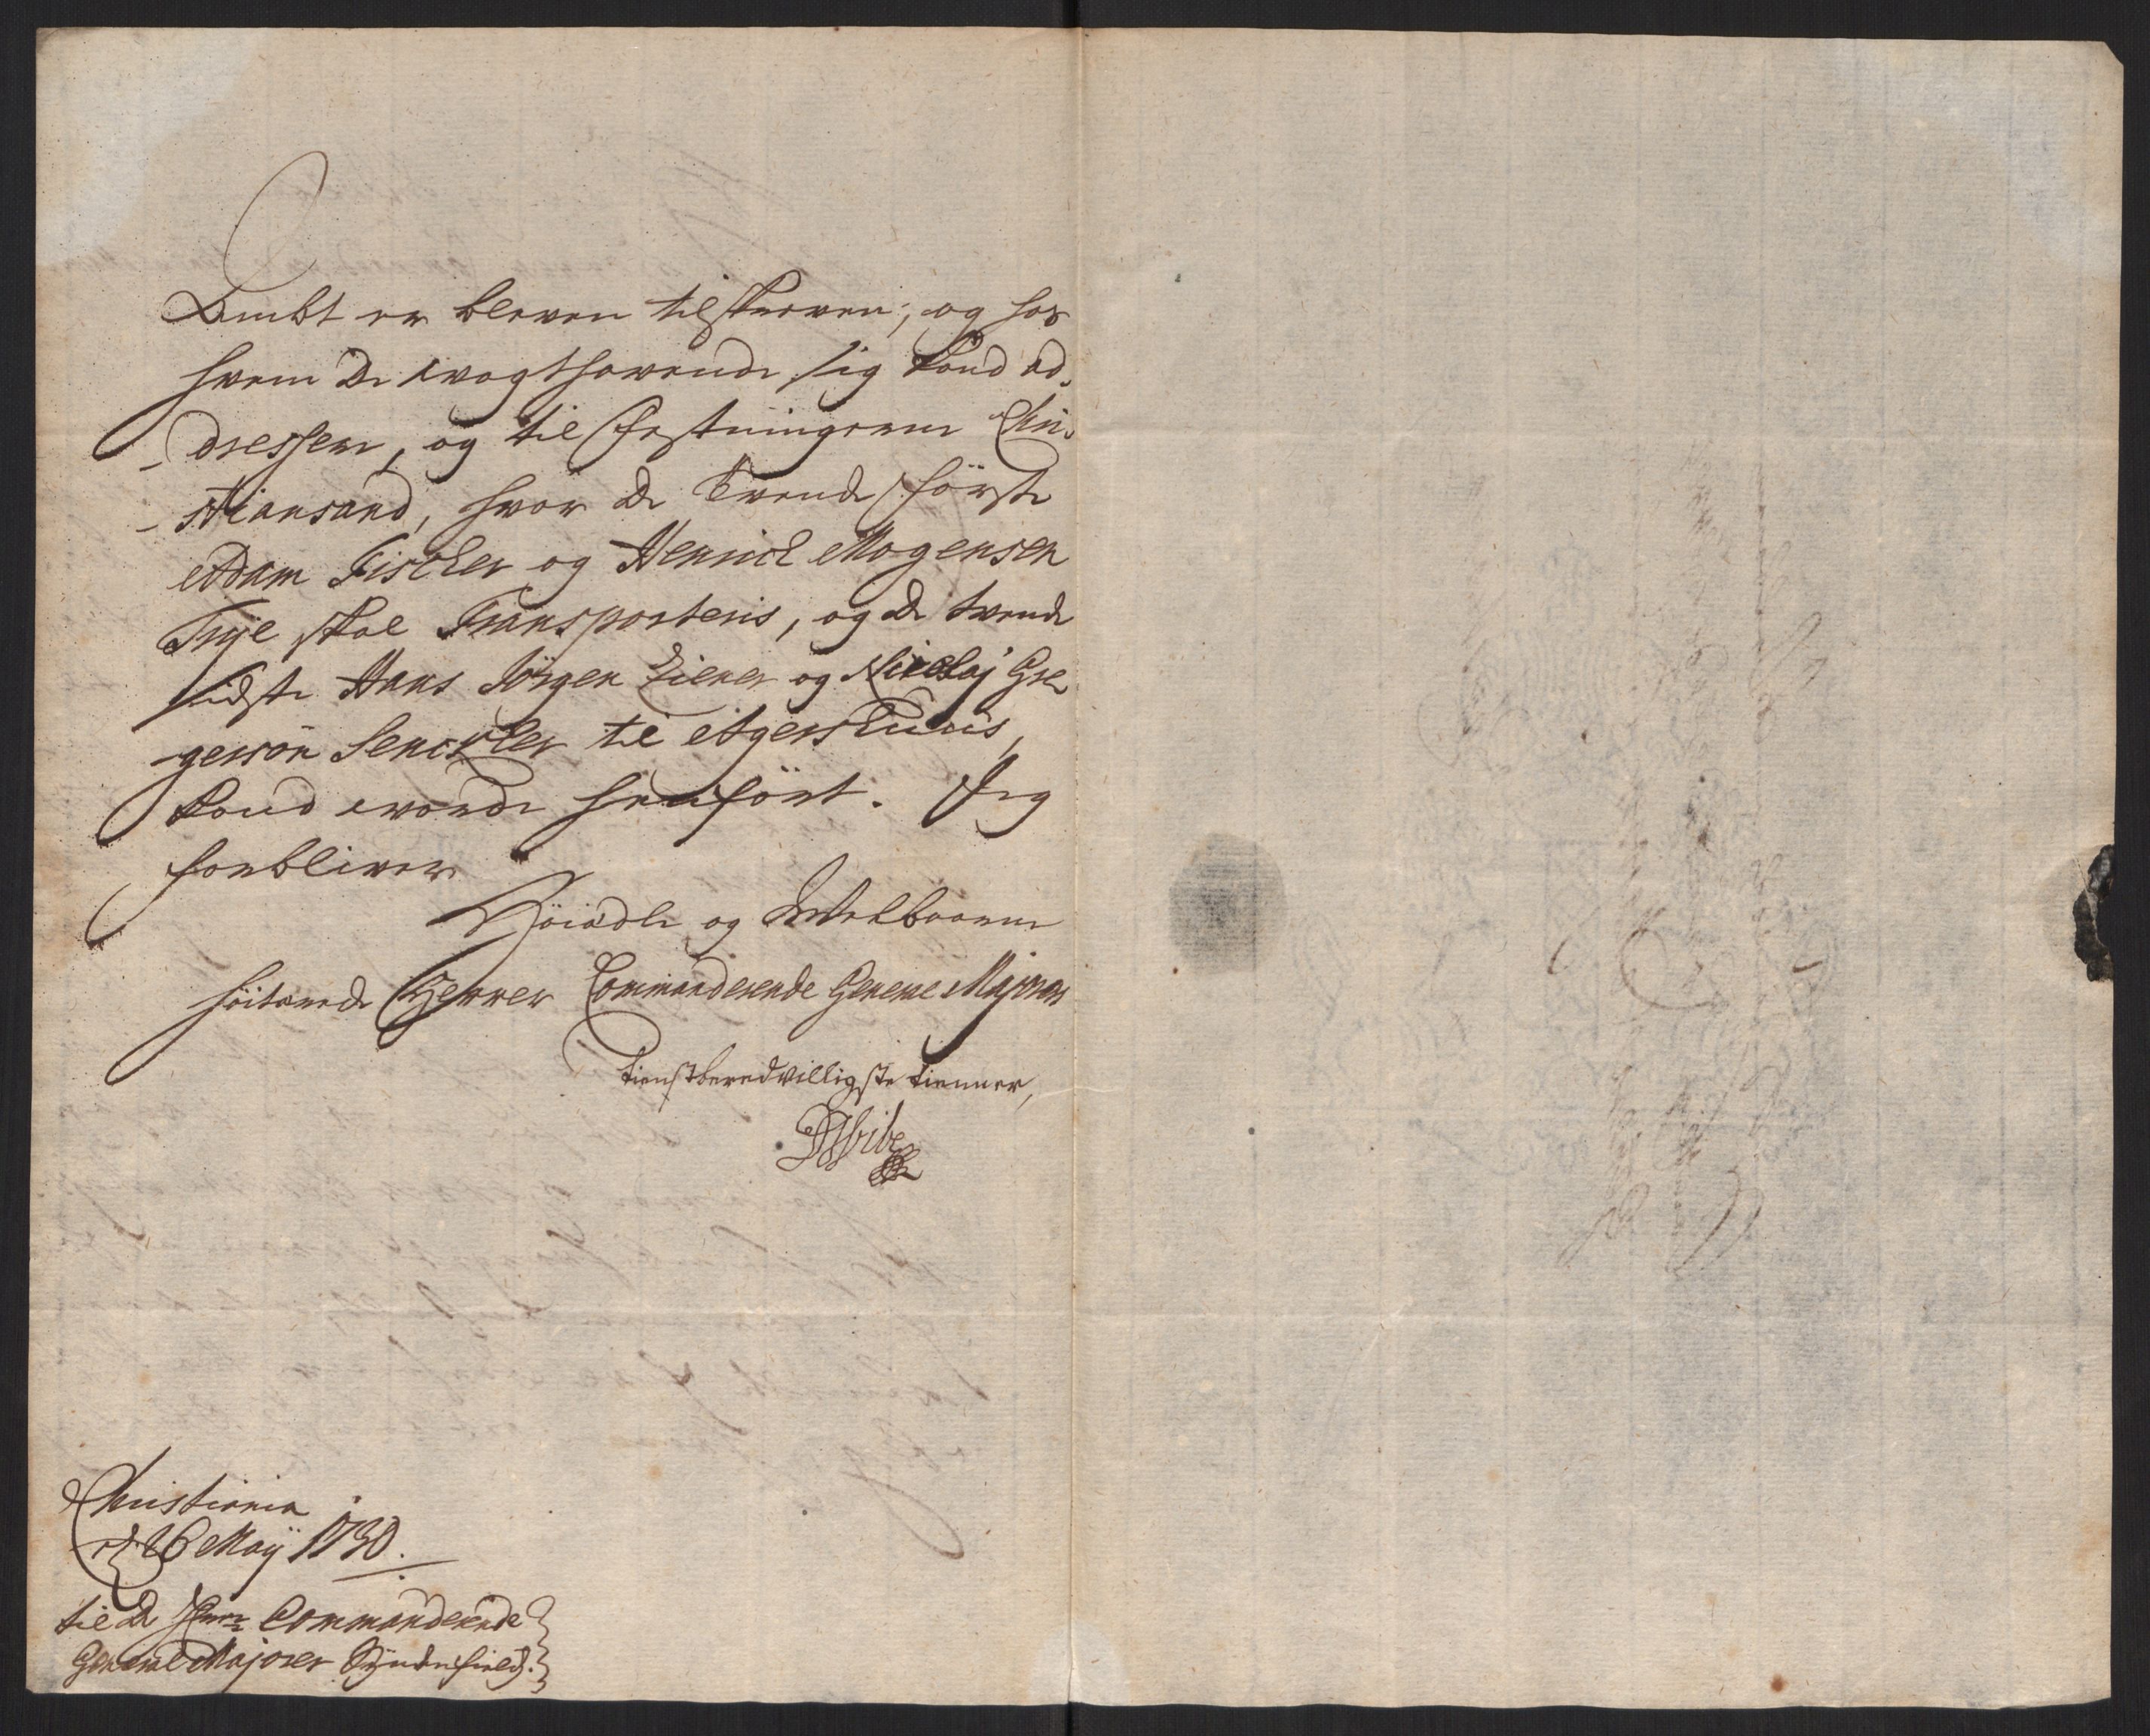 Ambt er bleven tilskreven; og hos
hvem De waghthavende sig kand ad-
-dressere, og til Festningerne Chri-
-stiansand, hvor De Tvende første
Adam Fischer og Henrich Mogensen
Trye skal Transporteris, og De tvende
sidste Hans Jörgen Ziener og Nicolaj Gre
-gersön Senckler til Agershuus,
kand worde henfört. Jeg
forbliver
Höiædle og Welbaarne
höitærede Herrer Commanderende General Majorers
tienstberedvilligste tienner,
DWibe
Christiania
d 26 Maÿ 1730.
til De Herrer Commanderende
General Majorer Syndenfields.